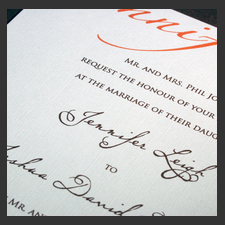 MR. AND MRS. PHIL
REQUEST THE HONOUR OF YOUR
AT THE MARRIAGE OF THEIR
Jennifer Leigh
TO
Joshua David
MR. AND